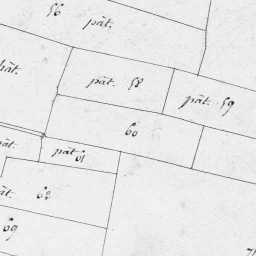 56
pât.
pât.
pât. 58
pât. 59
60
pât.
pât 61
ât. 62
69